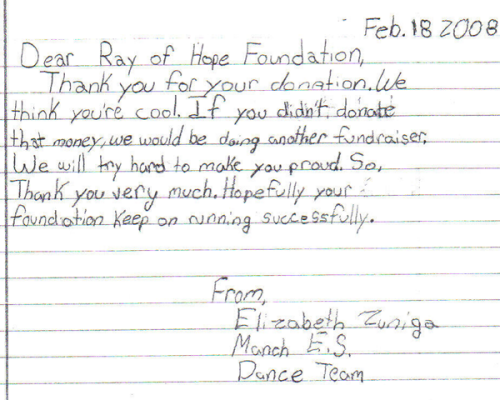 Feb. 18 2008
Dear Ray of Hope Foundation,
Thank you for your donation. We
think you're cool. If you didn't donate
that money, we would be doing another fundraiser.
We will try hard to make you proud. So,
Thank you very much. Hopefully your
foundation keep on running successfully.
From,
Elizabeth Zuniga
Manch E.S.
Dance Team